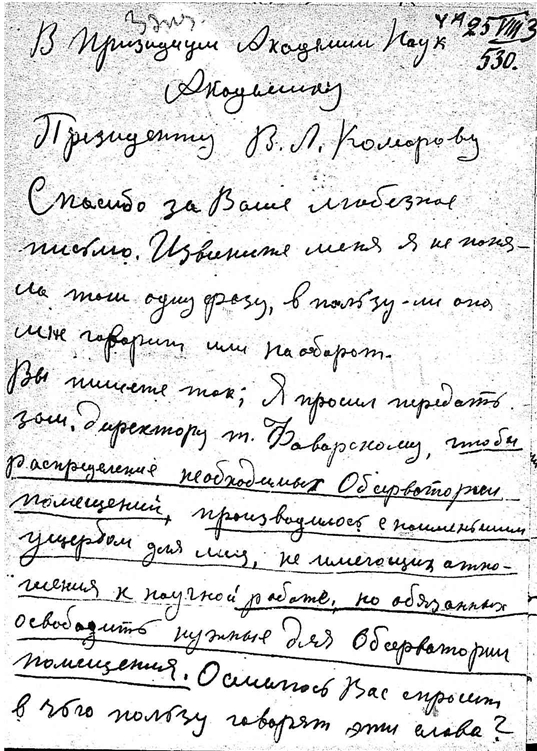 В Президиум Академии Наук
25 VIII 3
530.
Академику
Президенту В. Л. Комарову
Спасибо за Ваше любезное
письмо. Извините меня я не поня-
ла там одну фразу, в пользу-ли она
мне говорит или наоборот.
Вы пишете так; Я просил передать
зам. директору т. Фаворскому, чтобы
распределение необходимых Обсерватории
помещений, производилось с наименьшим
ущербом для лиц, не имеющих отно-
шения к научной работе, но обязанных
освободить нужные для Обсерватории
помещения. Осмелюсь Вас спросить
в чью пользу говорят эти слова?